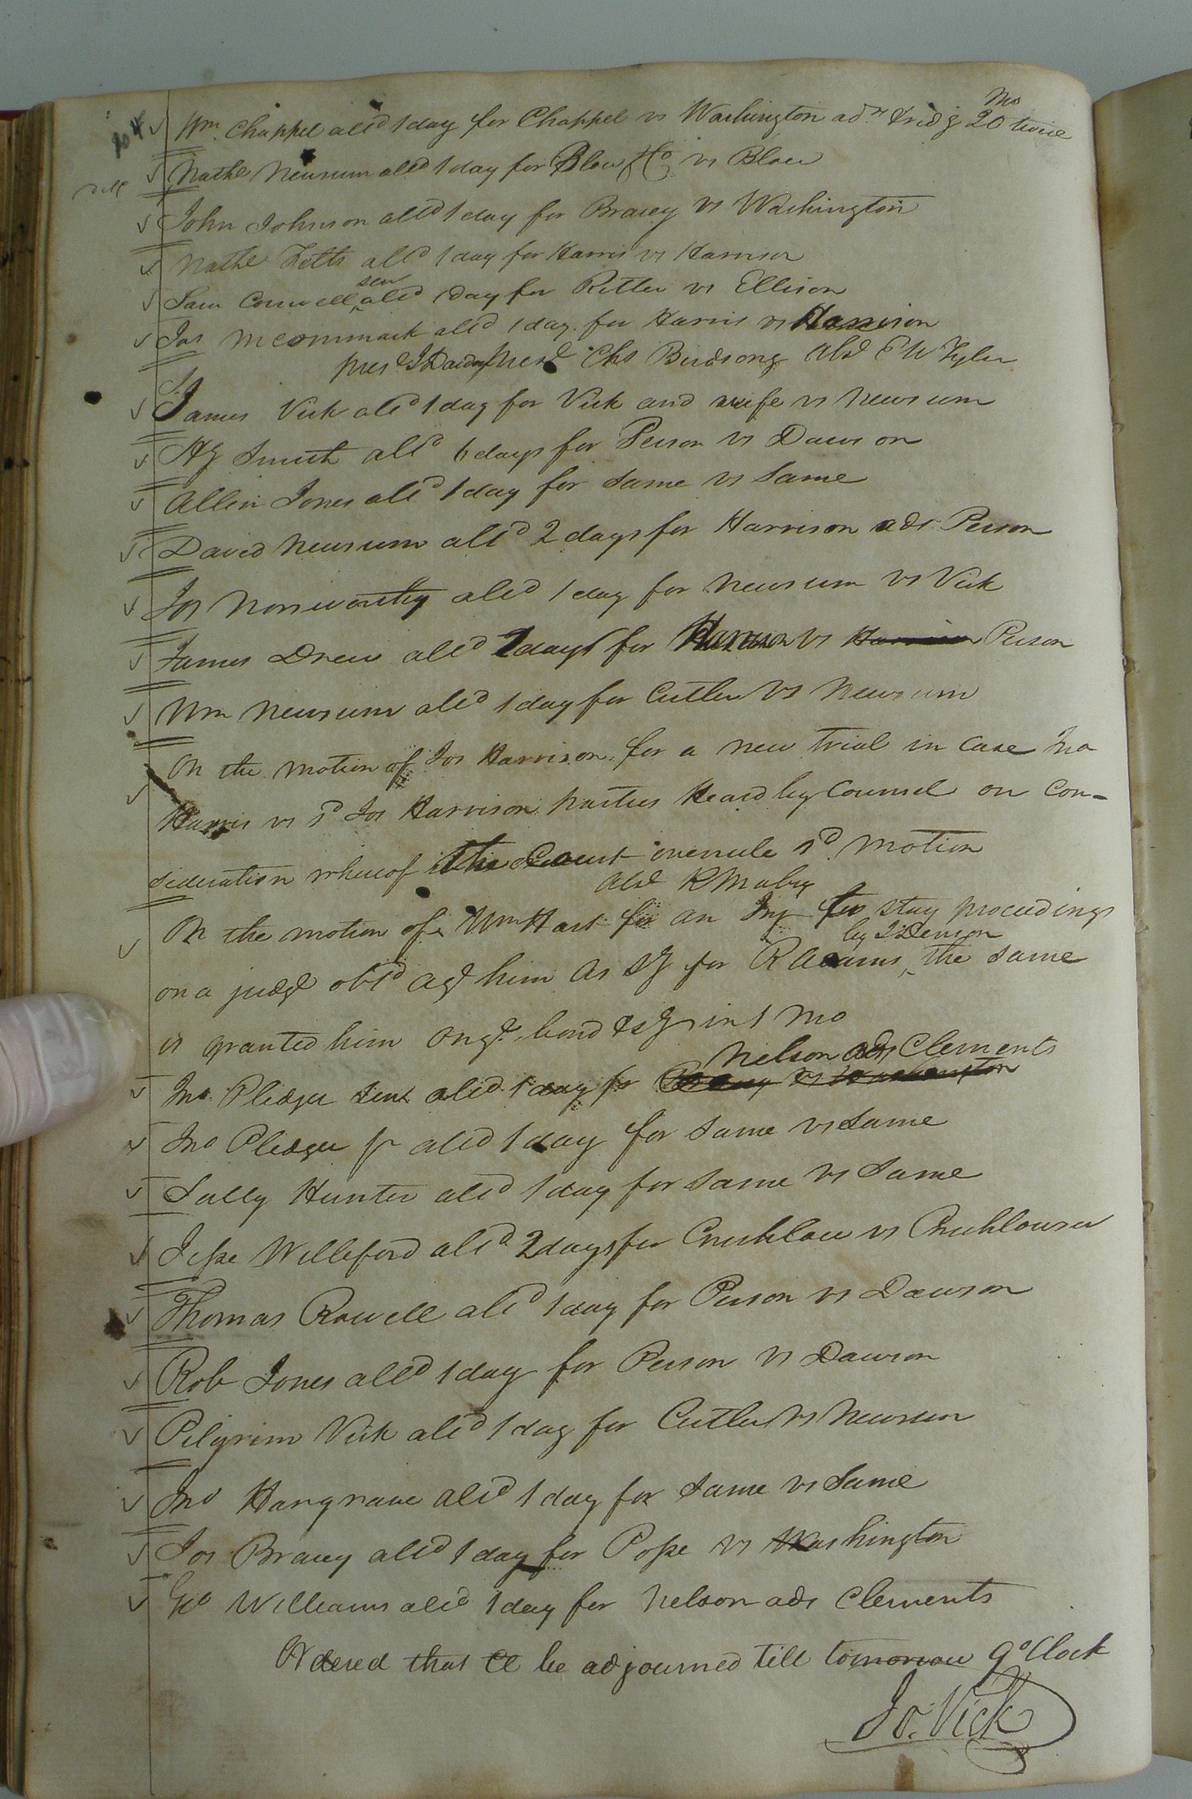 204
Mo
Wm. Chappel alld 1 day for Chappel vs Washington adr & rid g 20 twice
Nathl Newsum alld 1 day for Blow & Co vs Blow
John Johnson alld 1 day for Bracey vs Washington
Nathl Felts alld 1 day for Harris vs Harrison
Sam Connell senr alld 1 day for Ritter vs Ellison
Jas McCommack alld 1 day for Harris vs Harrison
pres Chs Birdsong Abst E W Tyler
James Vick alld 1 day for Vick and wife vs Newsum
HG Smith alld 6 days for Person vs Dawson
Allen Jones alld 1 day for same vs Same
David Newsum alld 2 days for Harrison ads Person
Jos Norsworthy alld 1 day for Newsum vs Vick
James Drew alld 2 days for Harrison vs Harrison Person
Wm Newsum alld 1 day for Cutler vs Newsum
On the motion of Jos Harrison for a new trial in case Jno
Harris vs sd Jos Harrison parties Heard by Counsel on Con-
sideration whereof the Court overrule sd motion
Abst R Mabry
On the motion of Wm Hart for an Inj to stay proceedings
by J Denson
on a judgt obtd agt him as SG for R Adams, the same
is granted him on gt. bond & sy in 1 Mo
Nelson ads Clements
Jno Pledger Senr alld 1 day for Bracey vs Washington
Jno Pledger jr alld 1 day for same vs Same
Sally Hunter alld 1 day for same vs Same
Jesse Williford alld 2 days for Crichlow vs Crichlow
Thomas Rowell alld 1 day for Person vs Dawson
Rob Jones alld 1 day for Person vs Dawson
Pilgrim Vick alld 1 day for Cutler vs Newsum
Jno Hargrave alld 1 day for Same vs Same
Jos Bracey alld 1 day for Pope vs Washington
Geo Williams alld 1 day for Nelson ads Clements
Ordered that Ct be adjourned till tomorrow 9 oClock
Jo. Vick